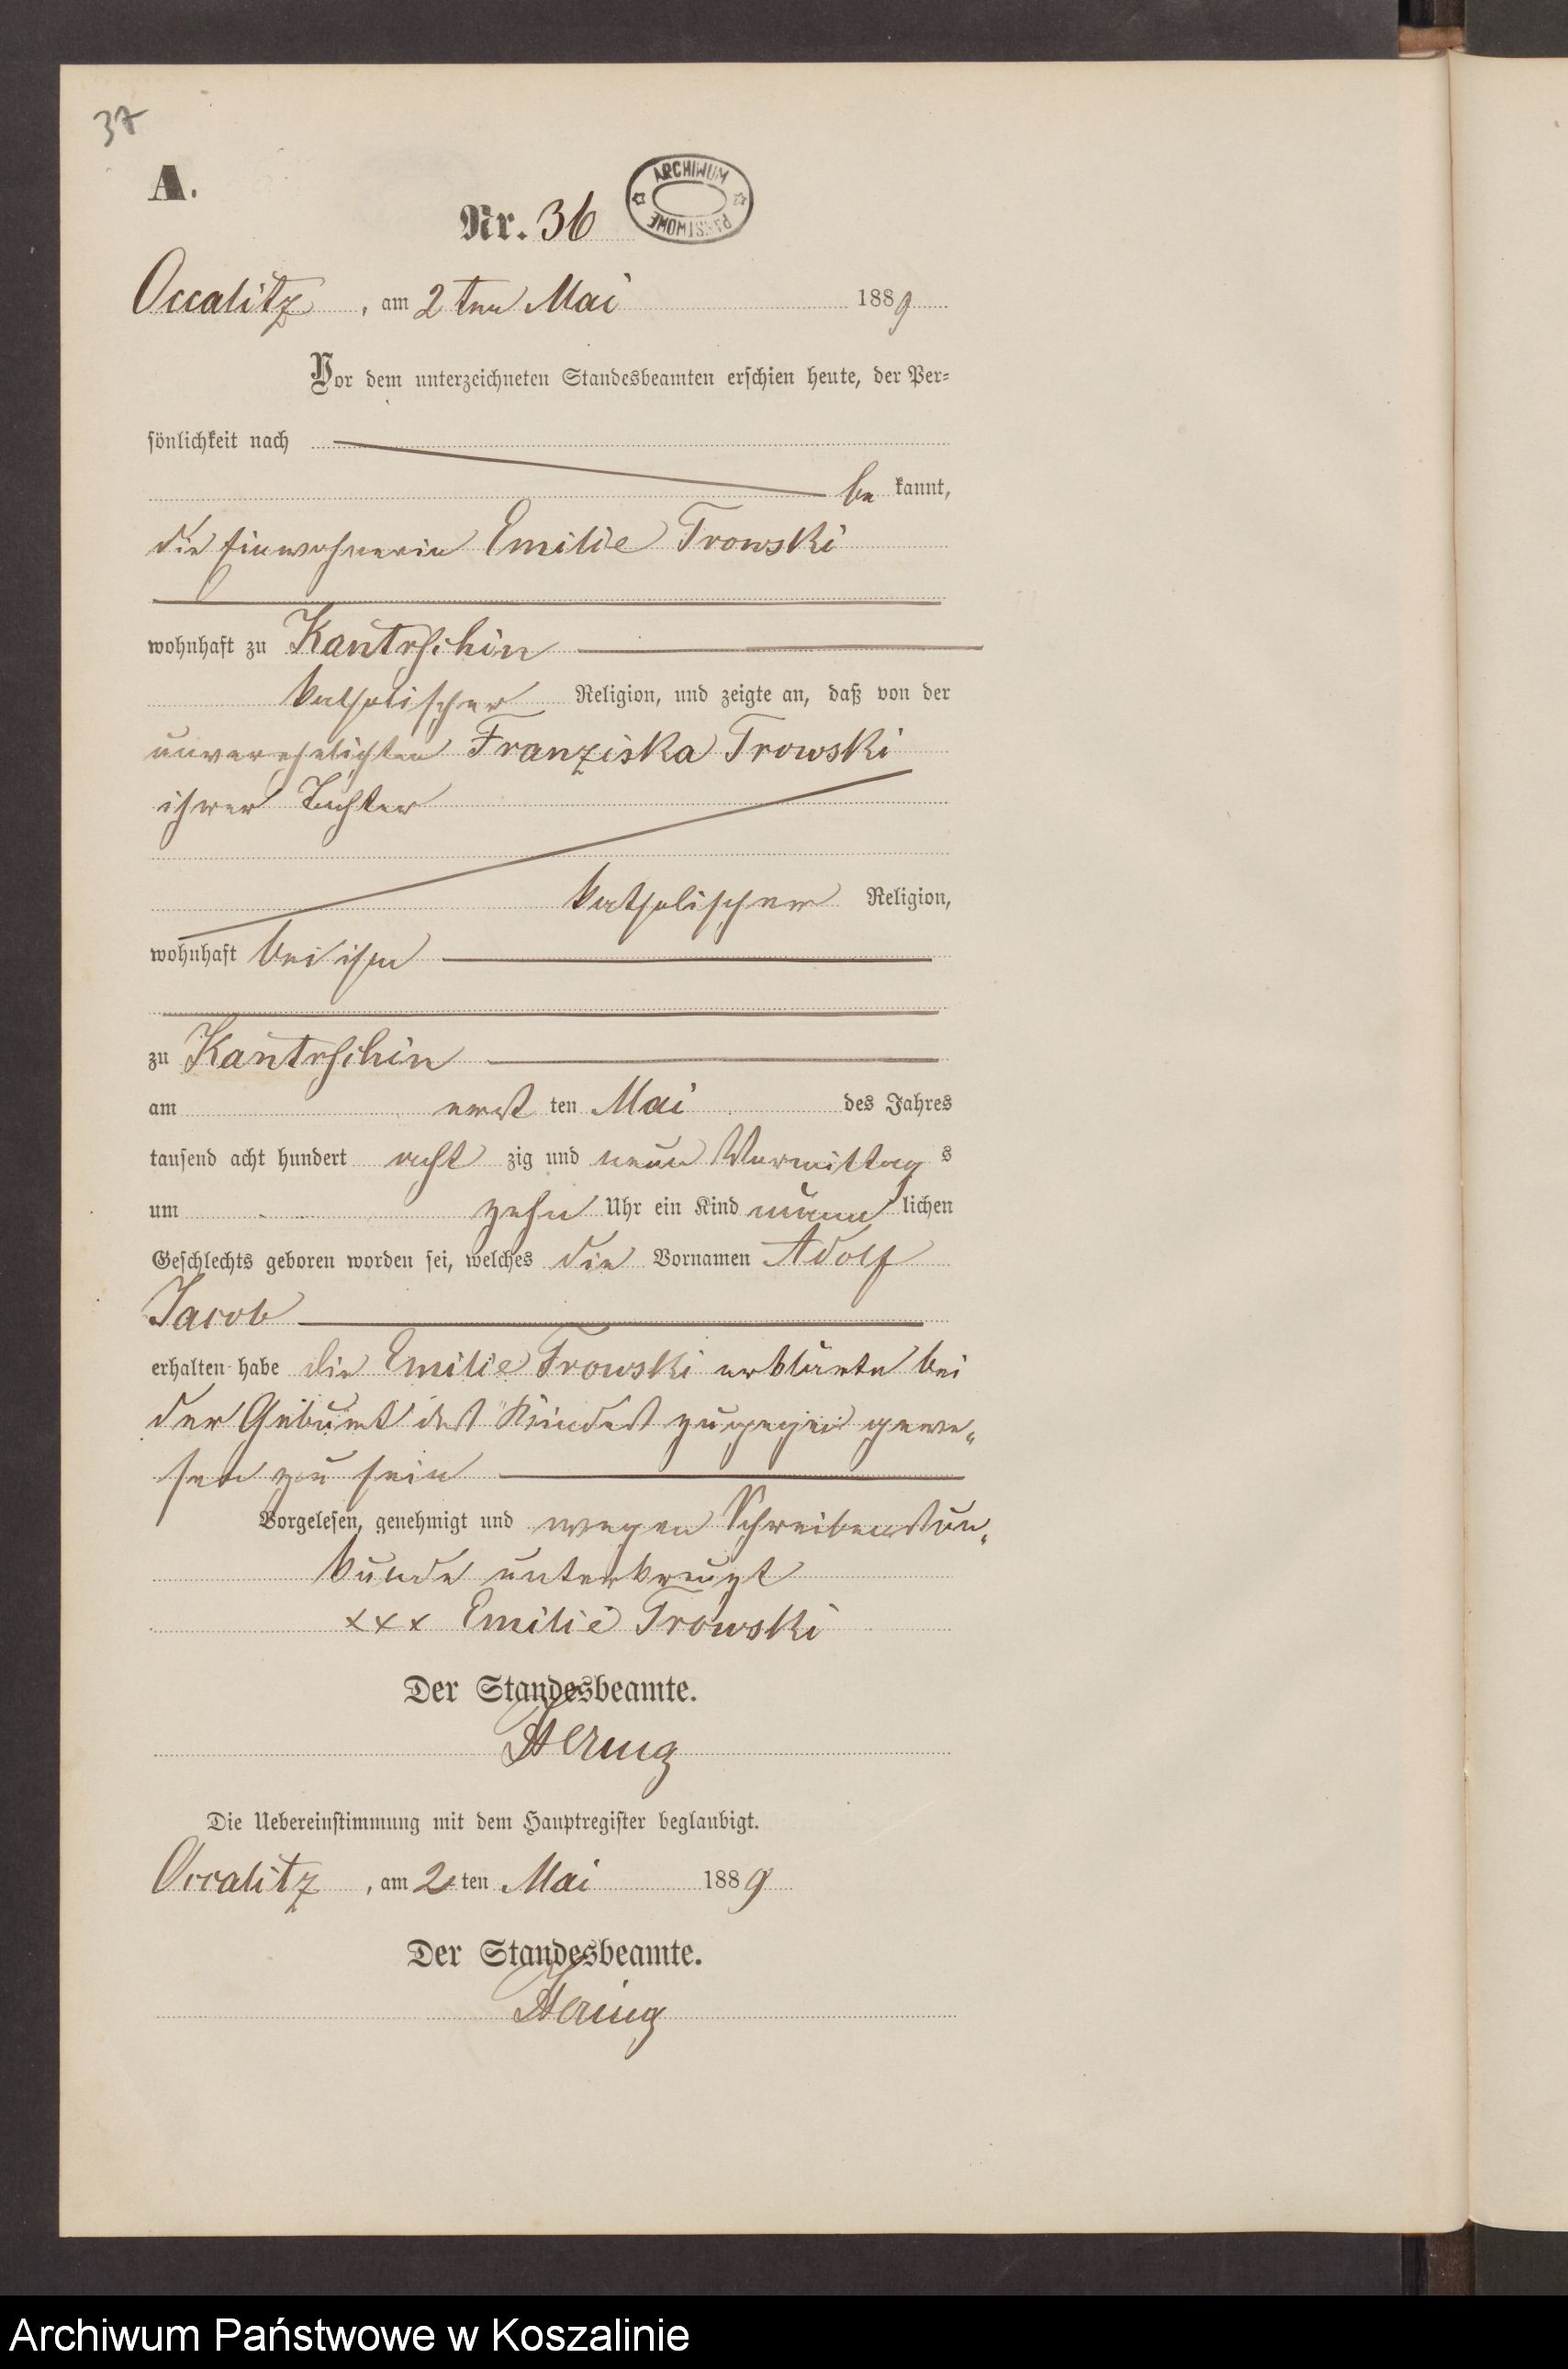 37
A.
ARCHIWUM
PAŃSTWOWE
Nr. 36
Occalitz, am 2ten Mai 1889
Vor dem unterzeichneten Standesbeamten erschien heute, der Per=
sönlichkeit nach
be kannt,
die Einwohnerin Emilie Trowski
wohnhaft zu Kantrschin
katholischer Religion, und zeigte an, daß von der
unverehelichten Franziska Trowski
ihrer Tochter
katholischer Religion,
wohnhaft bei ihr
zu Kantrschin
am erst ten Mai des Jahres
tausend acht hundert acht zig und neun Vormittag s
um zehn Uhr ein Kind männ lichen
Geschlechts geboren worden sei, welches die Vornamen Adolf
Jacob
erhalten habe die Emilie Trowski erklärte bei
der Geburt des Kindes zugegen gewe„
sen zu sein
Vorgelesen, genehmigt und wegen Schreibensun„
kunde unterkreuzt
xxx Emilie Trowski
Der Standesbeamte.
Hering
Die Uebereinstimmung mit dem Hauptregister beglaubigt.
Occalitz, am 2 ten Mai 1889
Der Standesbeamte.
Hering
Archiwum Państwowe w Koszalinie